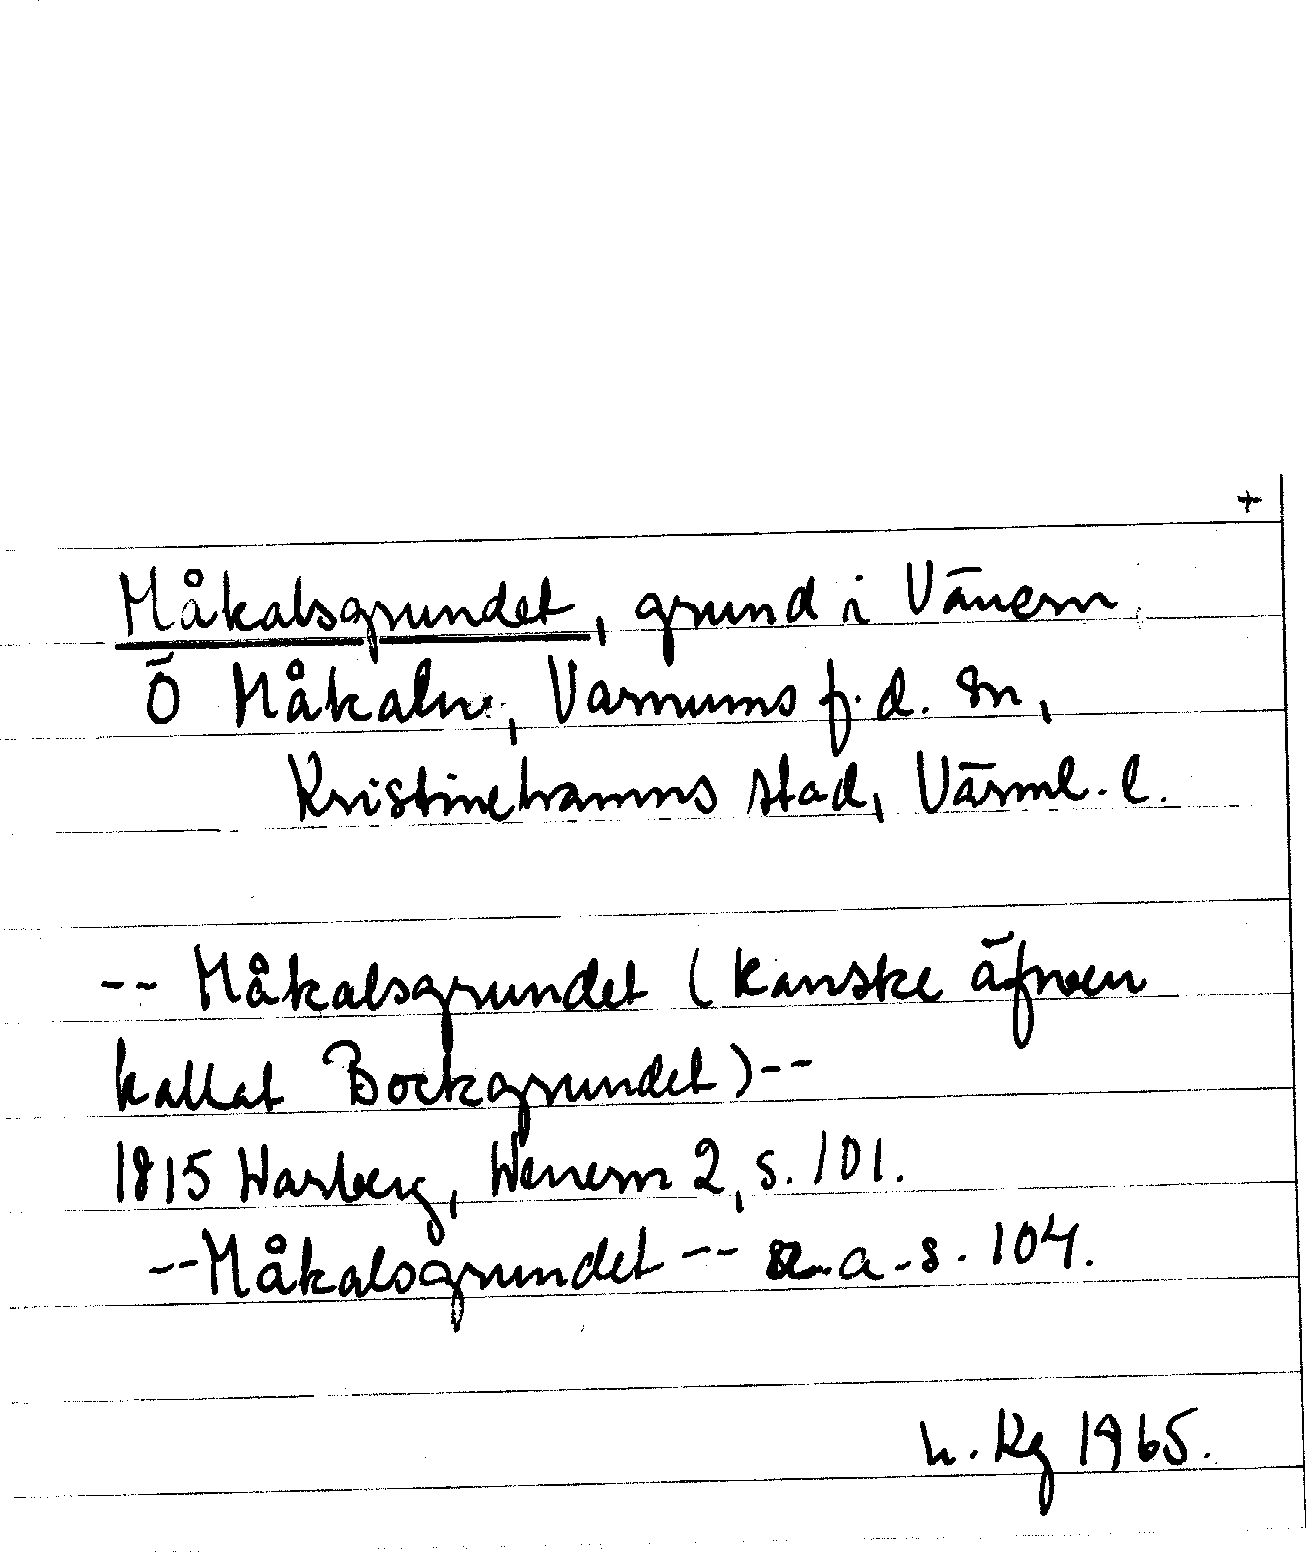 +
Måkalsgrundet, grund i Vänern
Ö Måkaln, Varnums f.d. sn,
Kristinehamns stad, Värml. l.
-- Måkalsgrundet (kanske äfven
kallat Bockgrundet) --
1815 Warberg, Wenern 2, s. 101.
-- Måkalsgrundet -- a.a. s. 104.
h. Rg 1965.